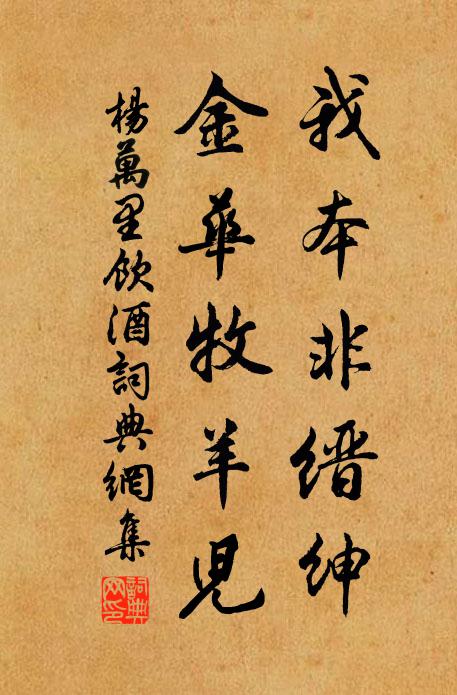 我本非缙紳
金華牧羊児
楊萬里飲酒詞典網集
詞典網印